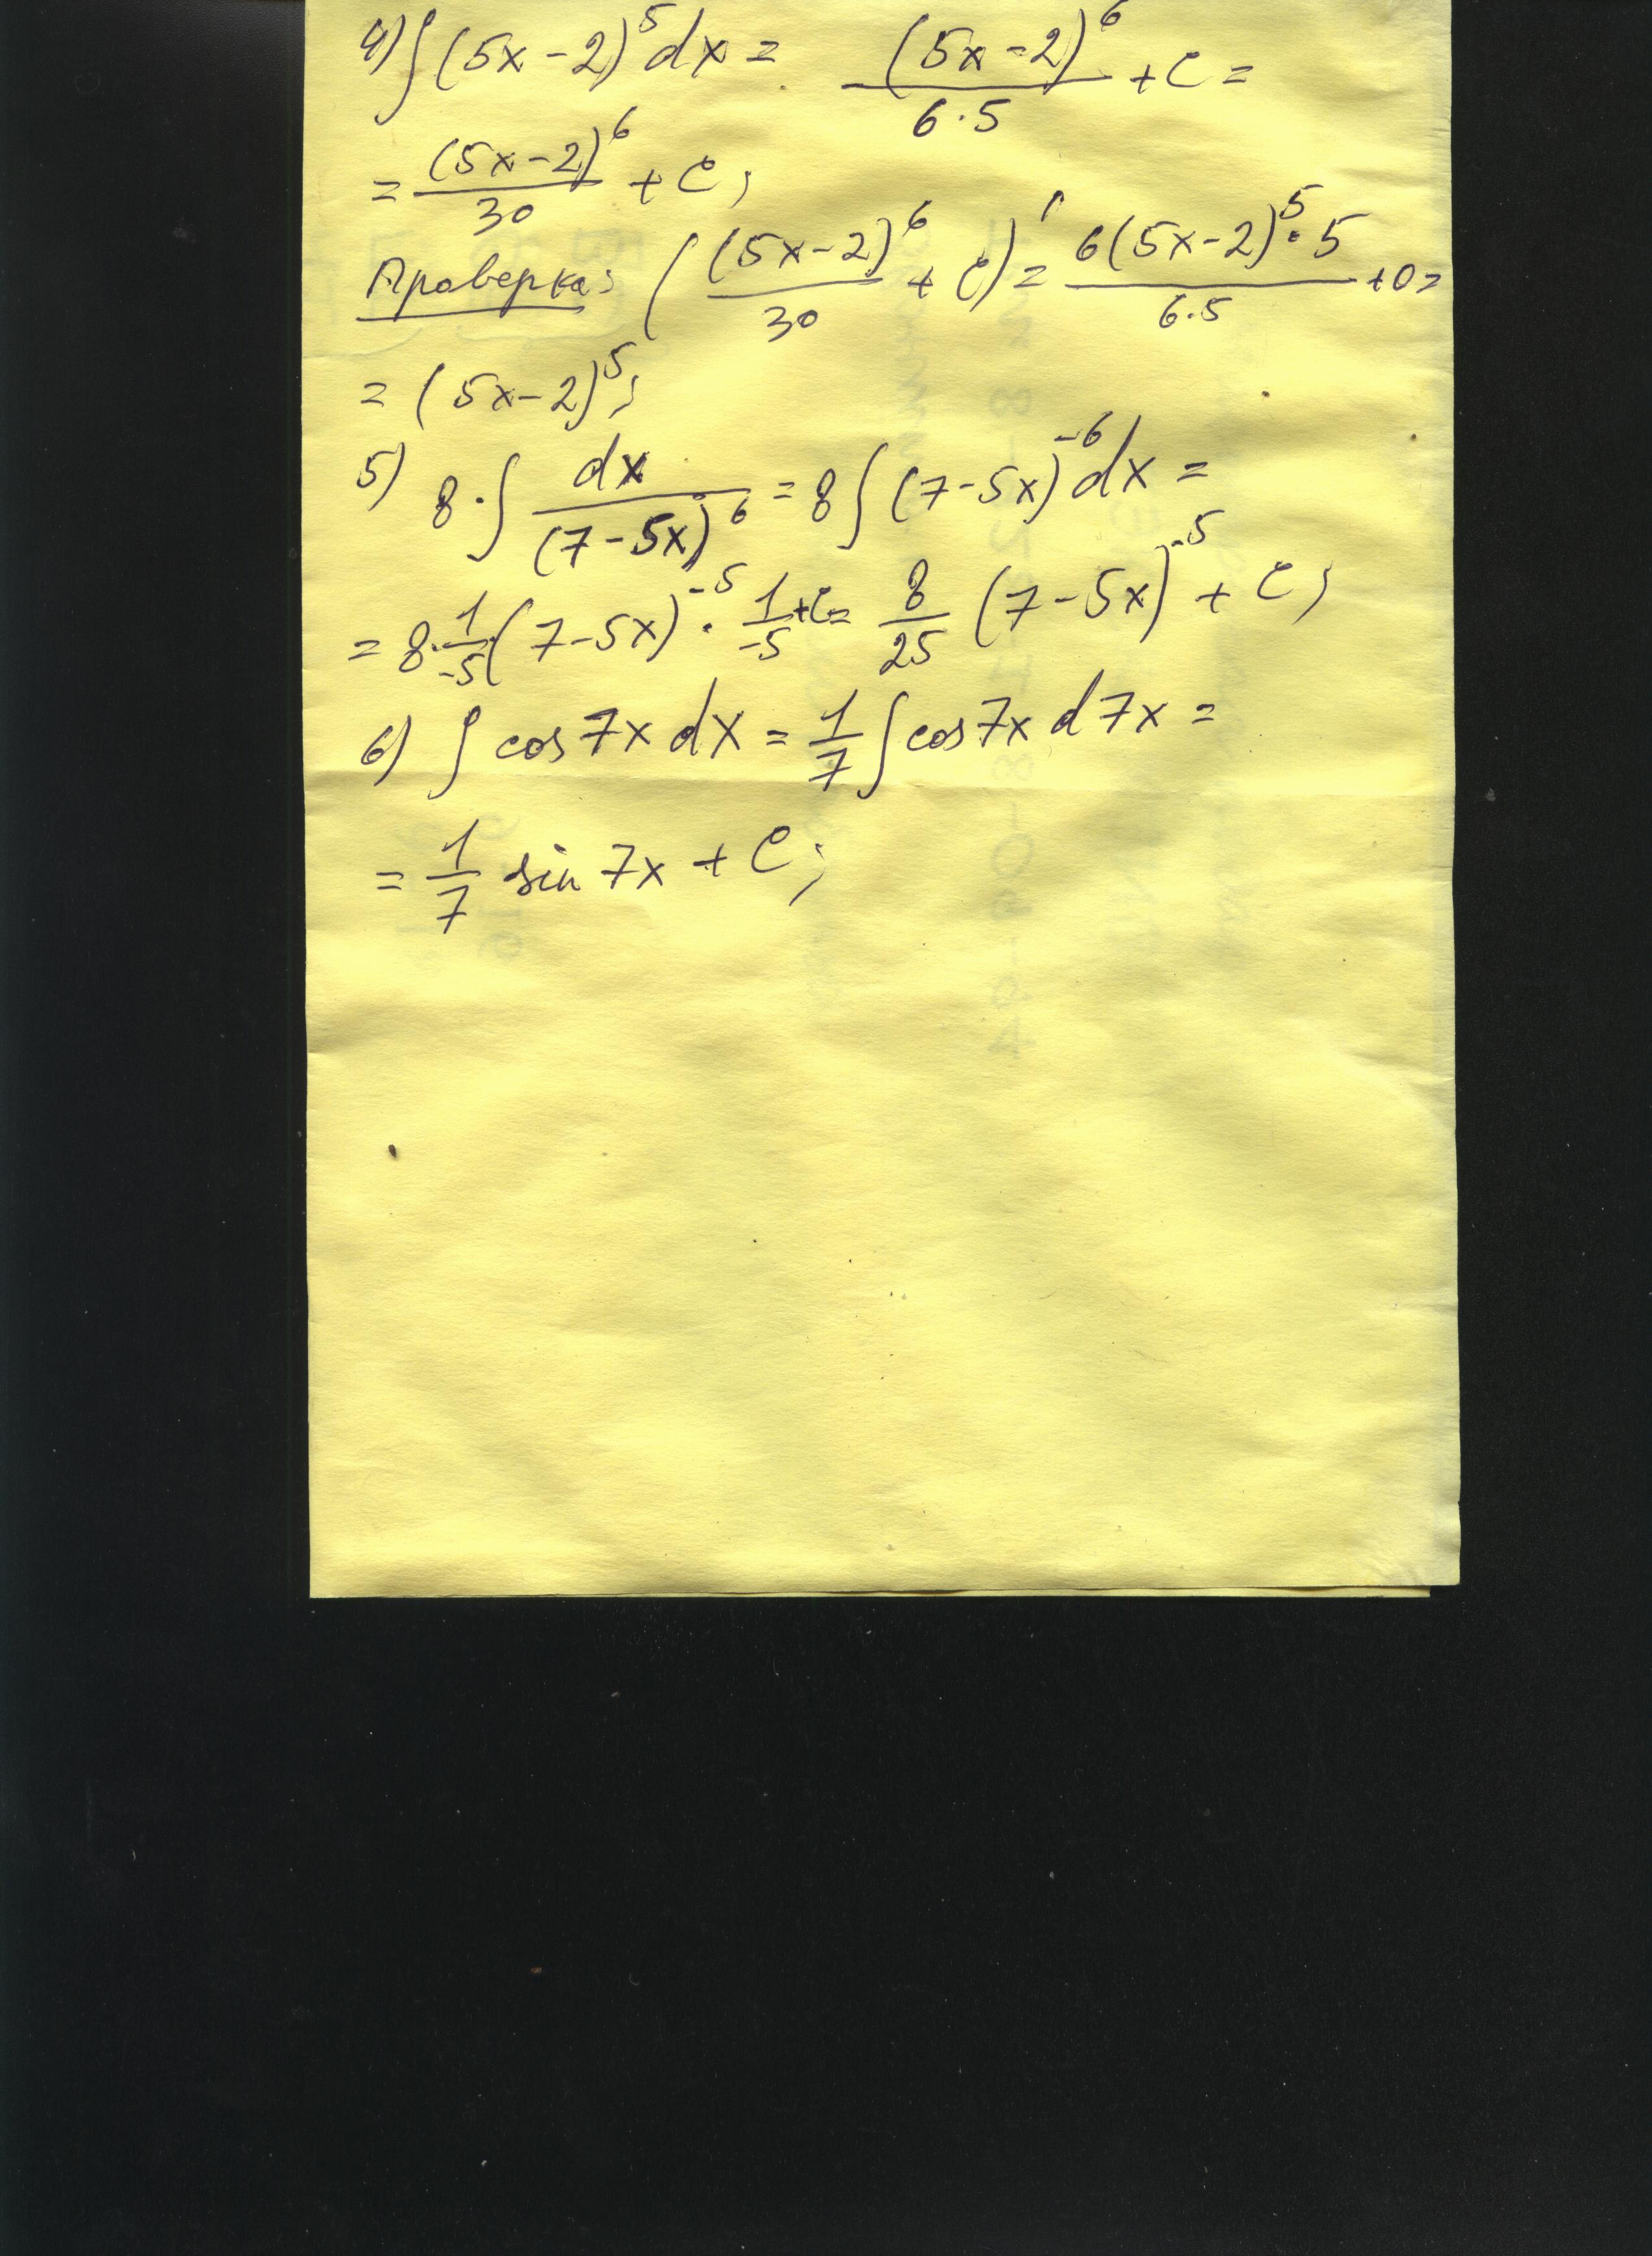 4) ∫ (5x - 2)⁵ dx = (5x - 2)⁶ / 6·5 + C =
= (5x - 2)⁶ / 30 + C;
Проверка: ((5x - 2)⁶ / 30 + C)' = 6(5x - 2)⁵ · 5 / 6·5 + 0 =
= (5x - 2)⁵;
5) 8·∫ dx / (7 - 5x)⁶ = 8 ∫ (7 - 5x)⁻⁶ dx =
= 8·1/-5 (7 - 5x)⁻⁵ · 1/-5 + C = 8/25 (7 - 5x)⁻⁵ + C;
6) ∫ cos 7x dx = 1/7 ∫ cos 7x d 7x =
= 1/7 sin 7x + C;